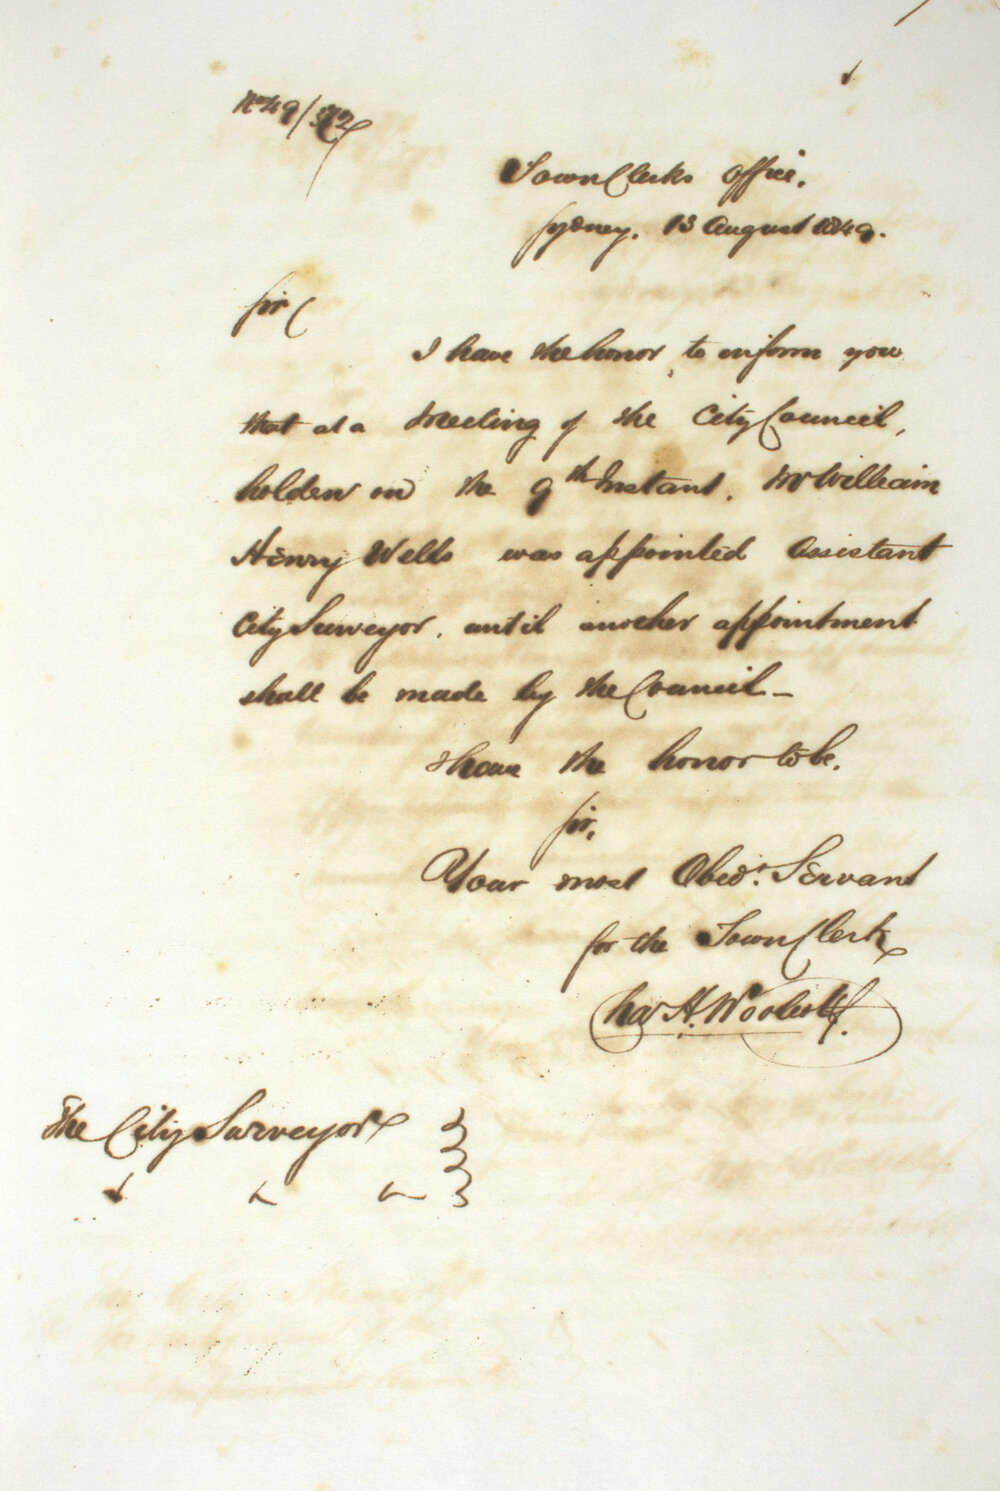 No 49/372
Town Clerks Office.
Sydney. 13 August 1849.
Sir
I have the honor to inform you
that at a Meeting of the City Council,
holden on the 9th Instant. Mr William
Henry Wells was appointed Assistant
City Surveyor. until another appointment
shall be made by the Council_
I have the honor to be.
Sir,
Your most Obedt. Servant
for the Town Clerk
Chas H. Woolcott.
The City Surveyor